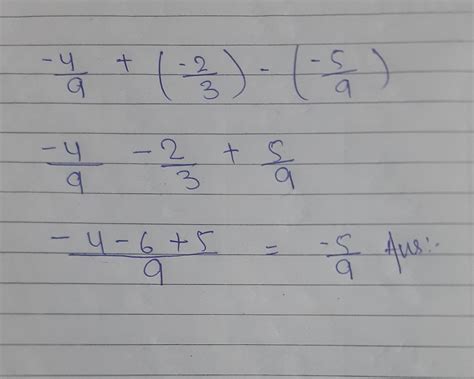 -4/9 + (-2/3) - (-5/9)
-4/9 -2/3 + 5/9
-4-6+5/9 = -5/9 Ans:-